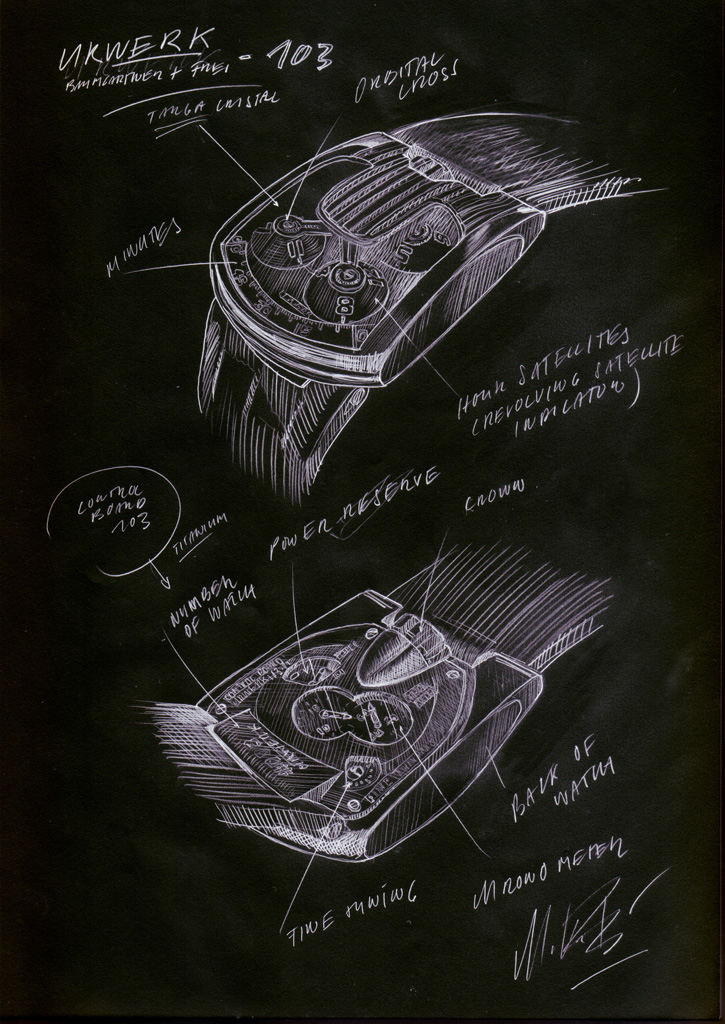 URWERK - 103
BAUMGARTNER + FREI
TARGA CRISTAL
ORBITAL
CROSS
MINUTES
HOUR SATELLITES
(REVOLVING SATELLITE
INDICATION)
CONTROL
BOARD
103
TITANIUM
POWER RESERVE
CROWN
NUMBER
OF WATCH
BACK OF
WATCH
CHRONOMETER
FINE TUNING